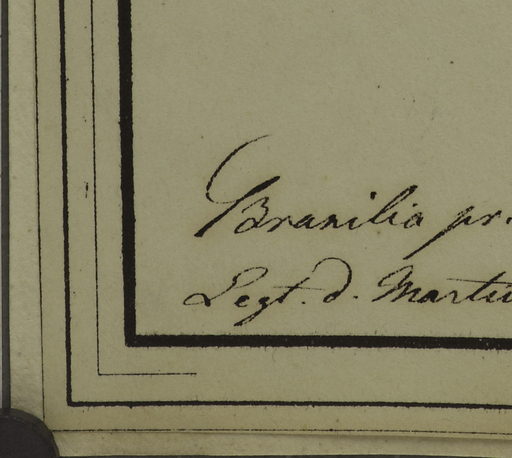 Brasilia pr.
Legt. d. Martiu